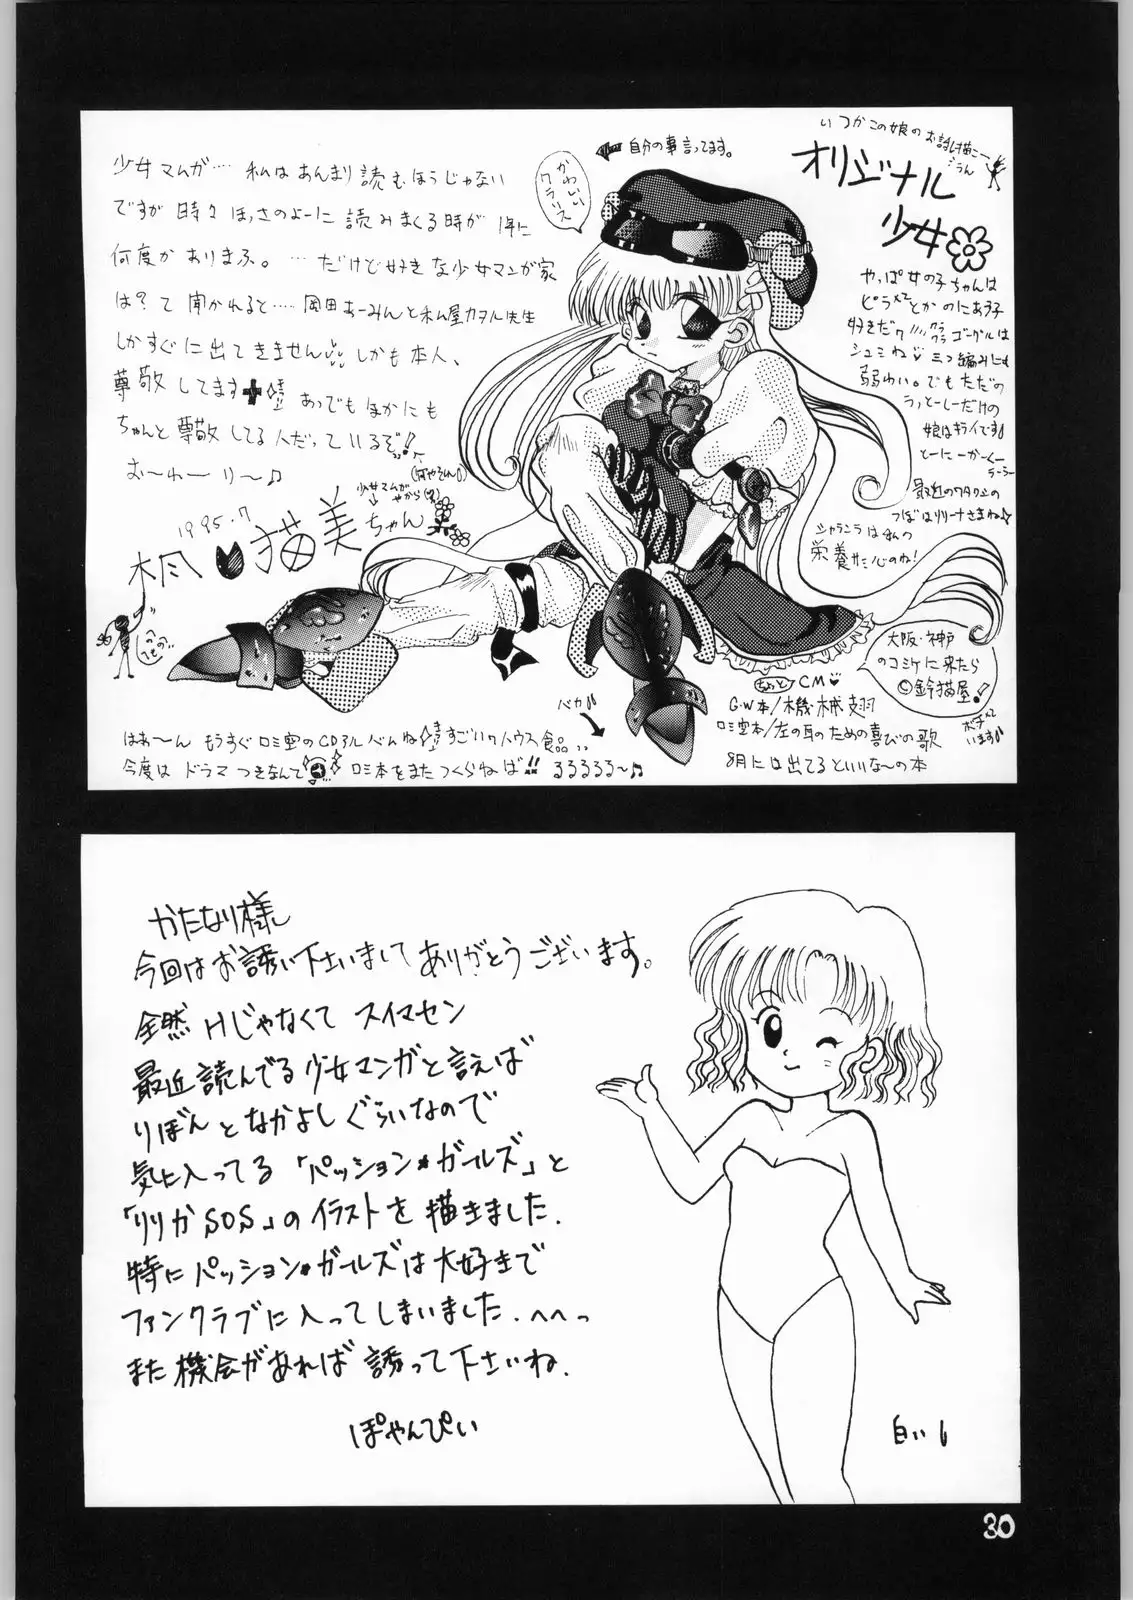 いつかこの娘のお話し描こー
オリジナル
少女
自分の事言ってます。
かわいい
クラリス
少女マムガ… 私はあんまり読むほうじゃない
ですが時々ほっさのよーに読みまくる時が1年に
何度かありまふ。…だけど好きな少女マンガ家
は?て聞かれると……岡田あーみんと私屋カヲル先生
しかすぐに出てきません しかも本人、
尊敬してます あっでもほかにも
ちゃんと尊敬してる人だっているぞ!
お〜わーり〜♪
1995.7
猫美ちゃん
少女マムガ
やっぱ女の子ちゃんは
好きだワ ゴーグルは
シュミね 三つ編みにも
弱わい。でもただの
娘はキライです
とーにーかーくー
らーらー
最近のワタクシの
つぼはリリーナさまね☆
シャランラは私の
栄養サミ心のね!
大阪・神戸
のコミケに来たら
©鈴猫屋!
ちょっとCM
G・W本/機械翅
ロミ空本/左の耳のための喜びの歌
8月には出てるといいな〜の本
バカ
はぁ〜ん もうすぐロミ空のCDアルバムね すごいワハウス食品…
今度はドラマつきなんで ロミ本をまたつくらねば!! るるるるる〜♪
かたなり様
今回はお誘い下さいましてありがとうございます。
全然Hじゃなくてスイマセン
最近読んでる少女マンガと言えば
りぼんとなかよしぐらいなので
気に入ってる「パッション*ガールズ」と
「りりかSOS」のイラストを描きました.
特にパッション*ガールズは大好きで
ファンクラブに入ってしまいました.へへっ
また機会があれば誘って下さいね.
ぽやんぴい
白い
30